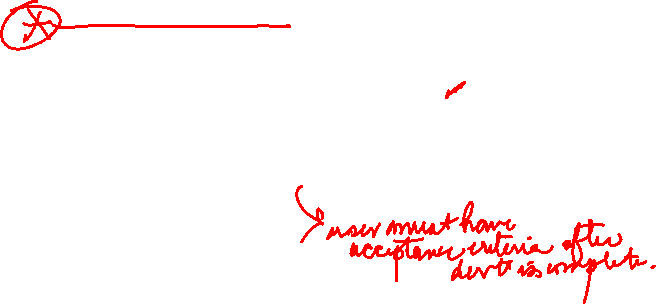 user must have
acceptance criteria after
devt is complete.